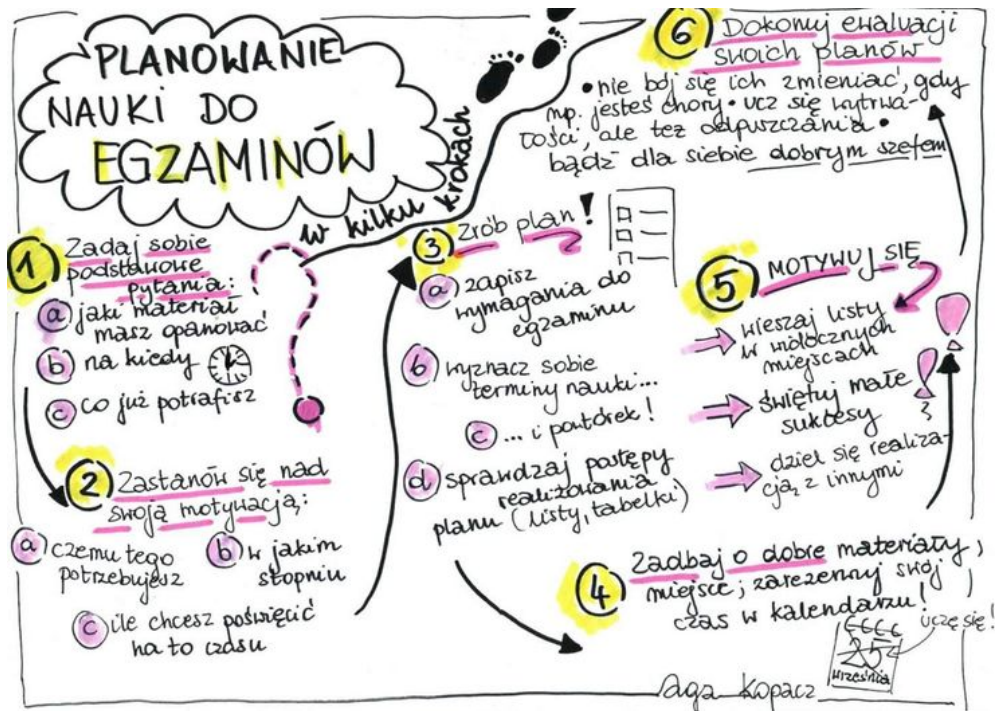 PLANOWANIE
NAUKI DO
EGZAMINÓW
w kilku krokach
1 Zadaj sobie
podstawowe
pytania:
a jaki materiał
masz opanować
b na kiedy
c co już potrafisz
2 Zastanów się nad
swoją motywacją:
a czemu tego
potrzebujesz
b w jakim
stopniu
c ile chcesz poświęcić
na to czasu
3 Zrób plan!
a zapisz
wymagania do
egzaminu
b wyznacz sobie
terminy nauki...
c ... i powtórek!
d sprawdzaj postępy
realizowania
planu (listy, tabelki)
4 Zadbaj o dobre materiały,
miejsce; zarezerwuj swój
czas w kalendarzu!
uczę się!
25
września
5 MOTYWUJ SIĘ
wieszaj listy
w widocznych
miejscach
świętuj małe
sukcesy
dziel się realiza-
cją z innymi
6 Dokonuj ewaluacji
swoich planów
• nie bój się ich zmieniać, gdy
np. jesteś chory • ucz się wytrwa-
łości, ale też odpuszczania •
bądź dla siebie dobrym szefem
Aga Kopacz